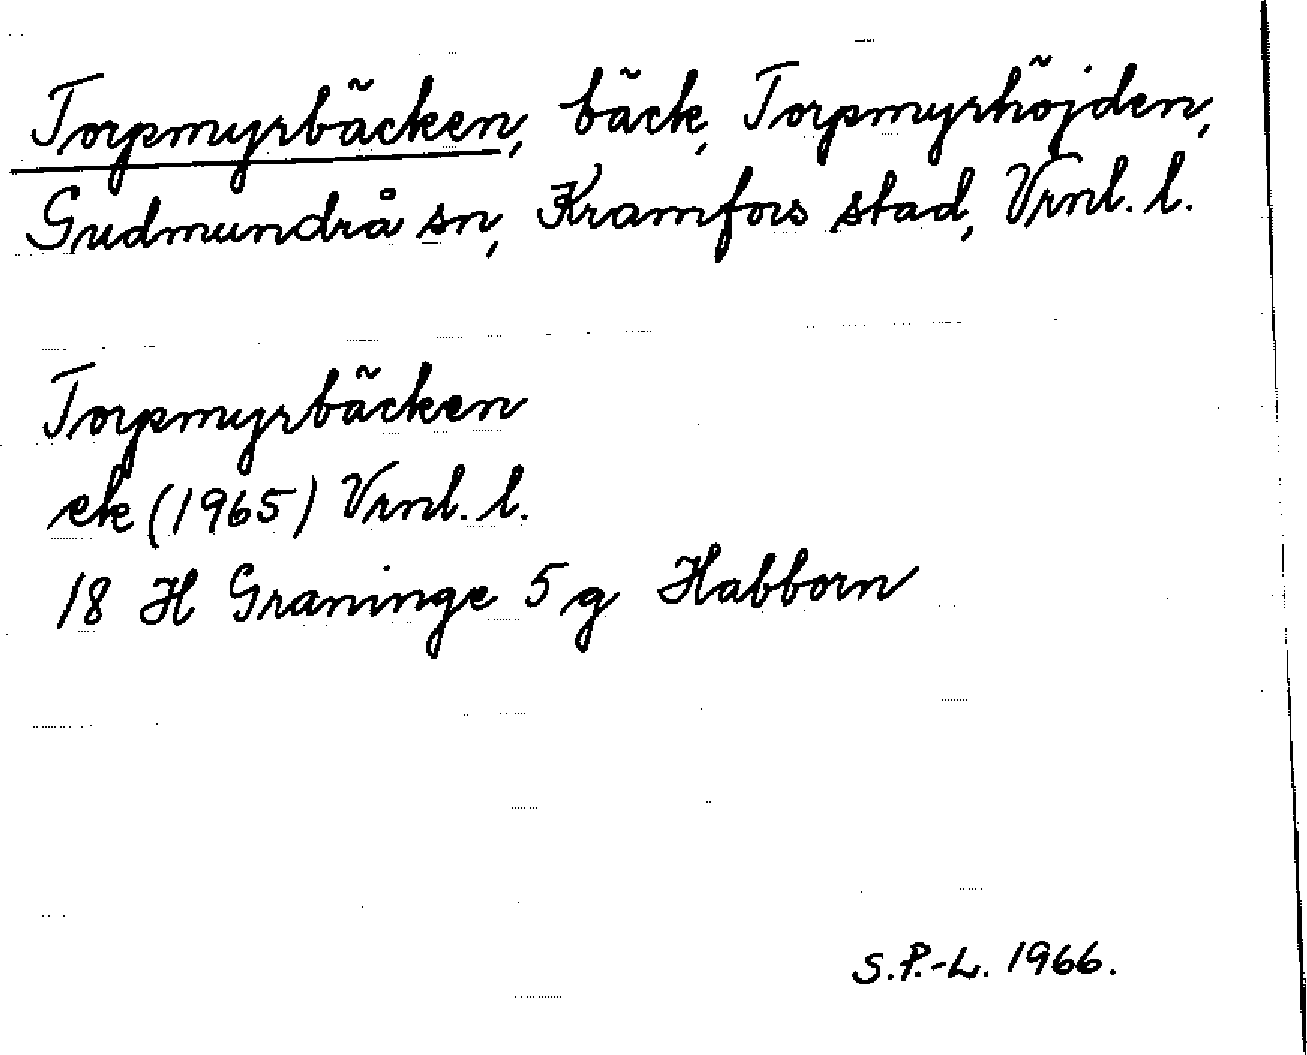 Torpmyrbäcken, bäck, Torpmyrhöjden,
Gudmundrå sn, Kramfors stad, Vrnl. l.
Torpmyrbäcken
ek (1965) Vrnl. l.
18 H Graninge 5 g Habborn
S.P.-L. 1966.